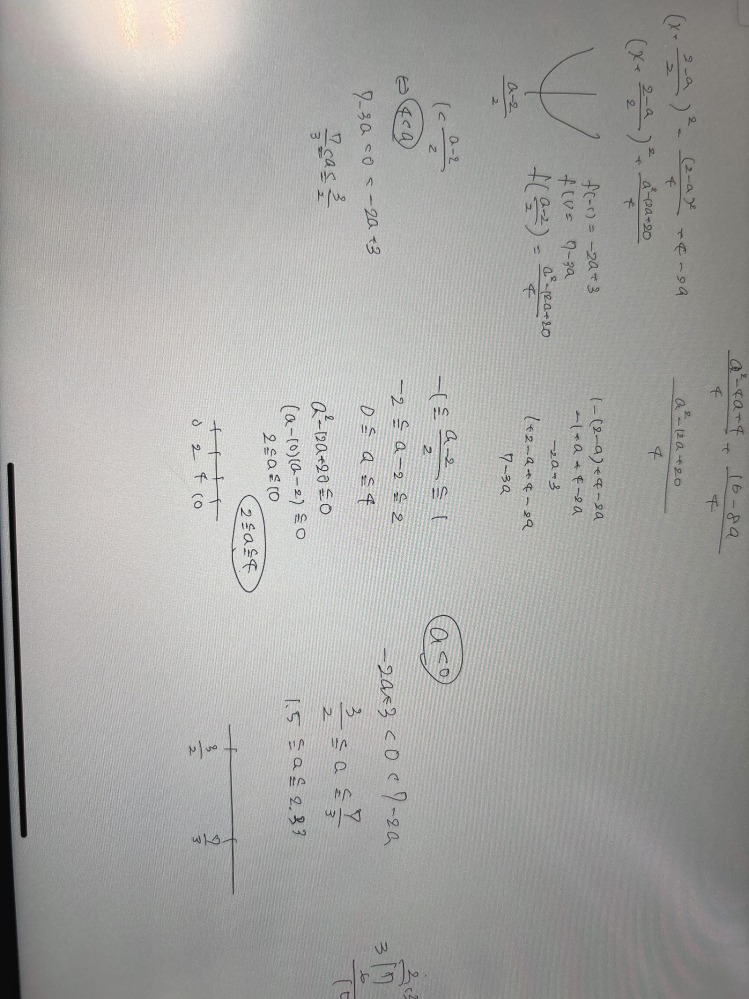 (x+\frac{2-a}{2})^2 - \frac{(2-a)^2}{4} + 4-2a
(x+\frac{2-a}{2})^2 + \frac{a^2-12a+20}{4}
\frac{a-2}{2}
f(-1) = -2a+3
f(1) = 7-3a
f(\frac{a-2}{2}) = \frac{a^2-12a+20}{4}
1<\frac{a-2}{2}
⇔ 4<a
7-3a<0<-2a+3
\frac{7}{3}≦a≦\frac{3}{2}
\frac{a^2-4a+4}{4} + \frac{16-8a}{4}
\frac{a^2-12a+20}{4}
1-(2-a)+4-2a
-1+a+4-2a
-2a+3
1+2-a+4-2a
7-3a
-1≦\frac{a-2}{2}≦1
-2≦a-2≦2
0≦a≦4
a^2-12a+20≦0
(a-10)(a-2)≦0
2≦a≦10
0 2 4 10
2≦a≦4
a<0
-2a+3<0<7-2a
\frac{3}{2}≦a≦\frac{7}{3}
1.5≦a≦2.33
\frac{3}{2} \frac{7}{3}